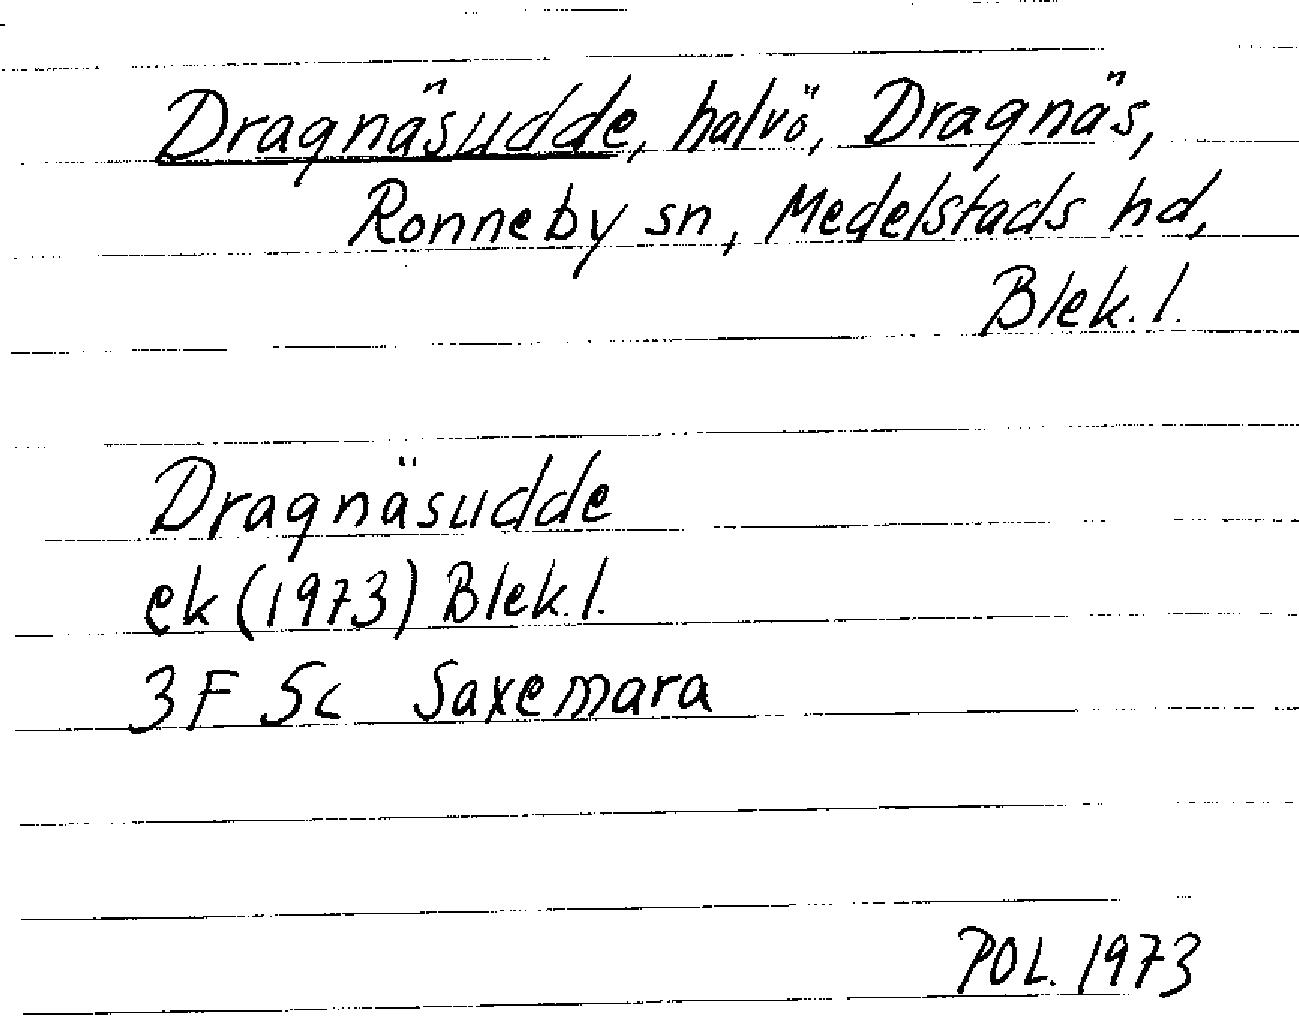 Dragnäsudde, halvö, Dragnäs,
Ronneby sn, Medelstads hd,
Blek. l.
Dragnäsudde
ek (1973) Blek. l.
3F 5c Saxemara
POL. 1973